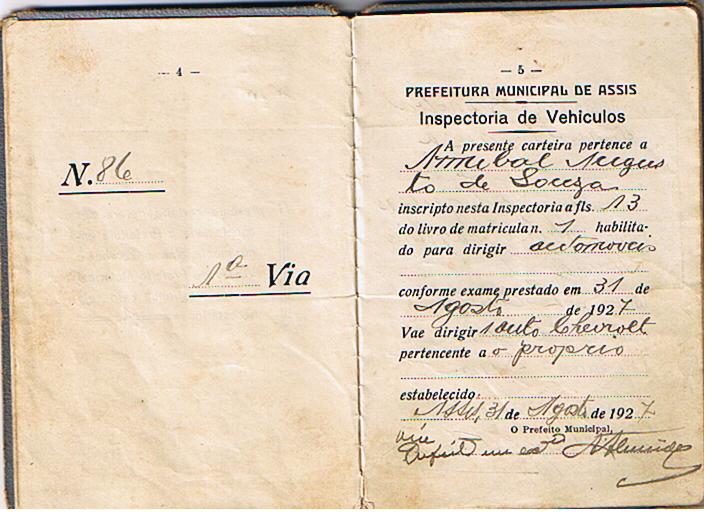 — 4 —
N. 86
1ª Via
— 5 —
PREFEITURA MUNICIPAL DE ASSIS
Inspectoria de Vehiculos
A presente carteira pertence a
Annibal Augus
to de Souza
inscripto nesta Inspectoria a fls. 13
do livro de matricula n. 1 habilita-
do para dirigir automoveis
conforme exame prestado em 31 de
Agosto de 1927
Vae dirigir 1 auto Chevrolt
pertencente a o proprio
estabelecido
Assis, 31 de Agosto de 1927
O Prefeito Municipal,
vice
Prefeito em exº